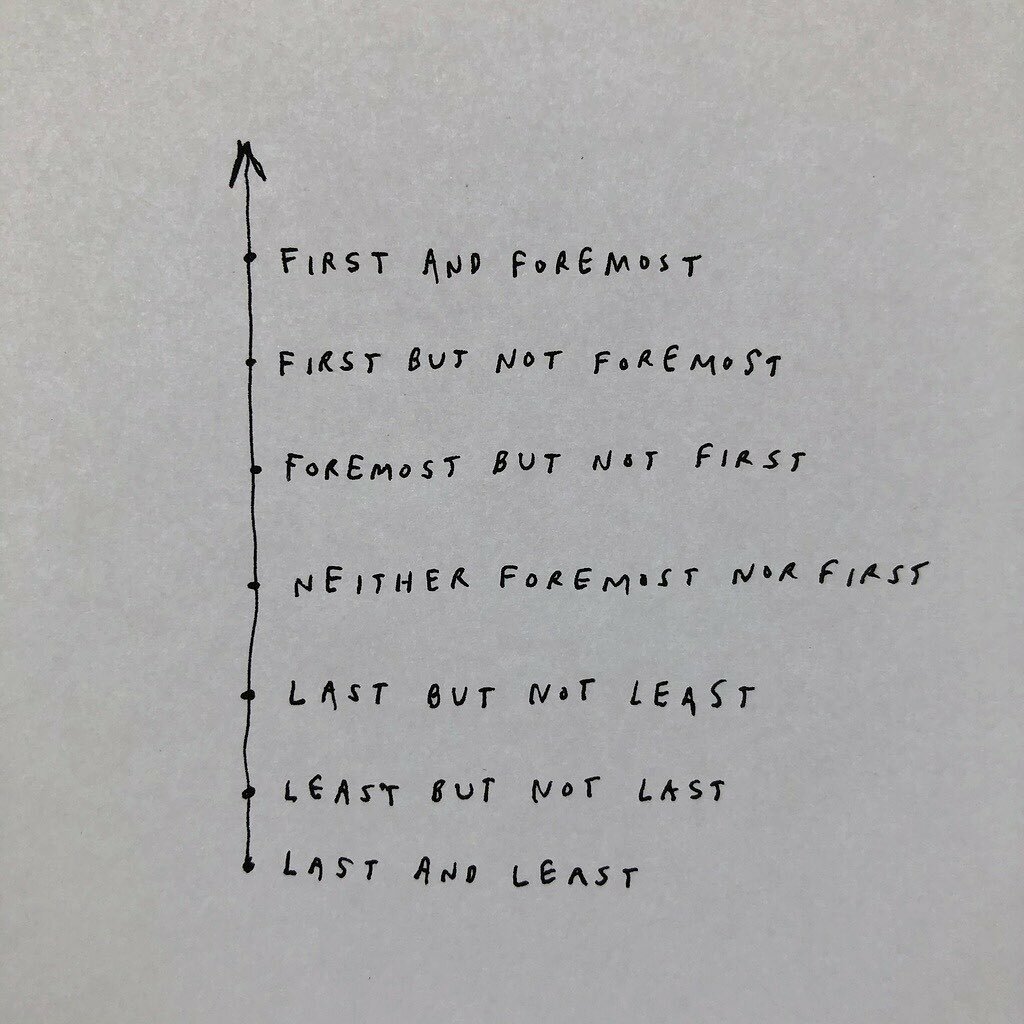 FIRST AND FOREMOST
FIRST BUT NOT FOREMOST
FOREMOST BUT NOT FIRST
NEITHER FOREMOST NOR FIRST
LAST BUT NOT LEAST
LEAST BUT NOT LAST
LAST AND LEAST